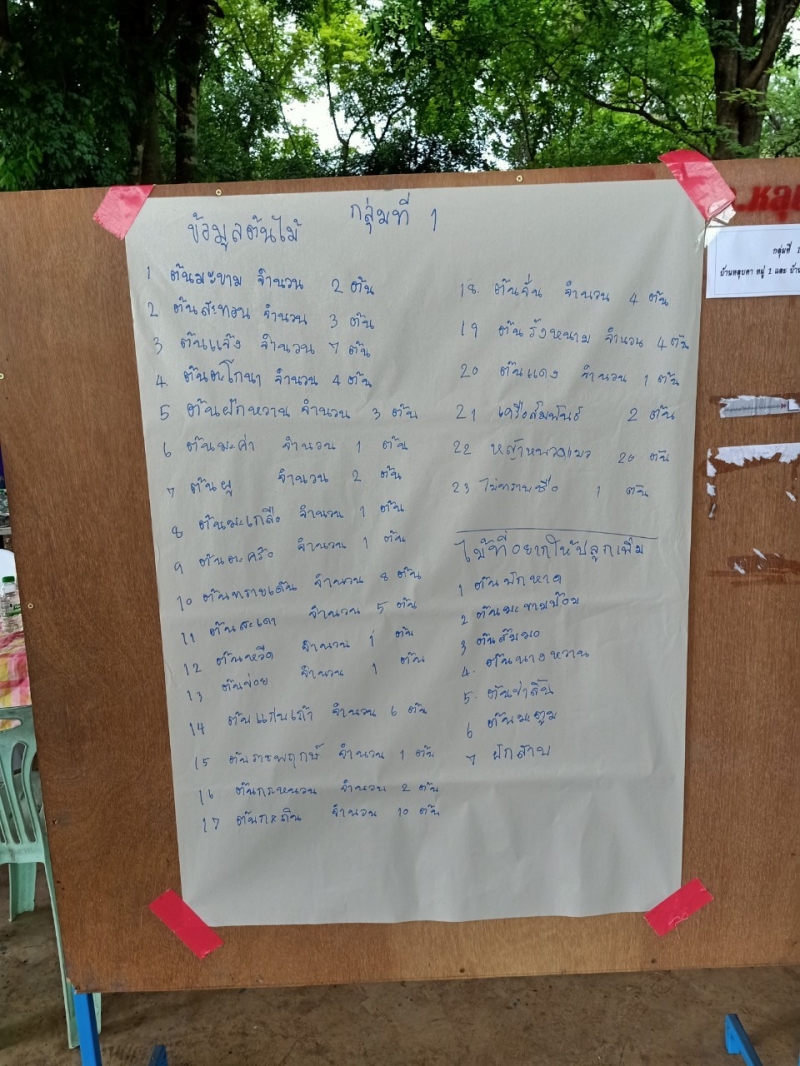 กลุ่มที่ 1
ข้อมูลต้นไม้
1 ต้นมะขาม จำนวน 2 ต้น
2 ต้นสะทอน จำนวน 3 ต้น
3 ต้นแจ้ง จำนวน 7 ต้น
4 ต้นตะโกนา จำนวน 4 ต้น
5 ต้นผักหวาน จำนวน 3 ต้น
6 ต้นมะค่า จำนวน 1 ต้น
7 ต้นผู จำนวน 2 ต้น
8 ต้นมะเกลือ จำนวน 1 ต้น
9 ต้นตะคร้อ จำนวน 1 ต้น
10 ต้นทรายเด้น จำนวน 8 ต้น
11 ต้นสะเดา จำนวน 5 ต้น
12 ต้นหวีด จำนวน 1 ต้น
13 ต้นข่อย จำนวน 1 ต้น
14 ต้นแก่นเก้า จำนวน 6 ต้น
15 ต้นราชพฤกษ์ จำนวน 1 ต้น
16 ต้นกระหนวน จำนวน 2 ต้น
17 ต้นกะถิน จำนวน 10 ต้น
18 ต้นจั่น จำนวน 4 ต้น
19 ต้นรังหนาม จำนวน 4 ต้น
20 ต้นแดง จำนวน 1 ต้น
21 เครือสัมพันธ์ 2 ต้น
22 หญ้าหนวดแมว 20 ต้น
23 ไม่ทราบชื่อ 1 ต้น
ไม้ที่อยากให้ปลูกเพิ่ม
1 ต้นผักหาด
2 ต้นมะขามป้อม
3 ต้นส้มมอ
4. ต้นนางหวาน
5. ต้นช่าลิ้น
6 ต้นมะตูม
7 ผักสาบ
กลุ่มที่ 1